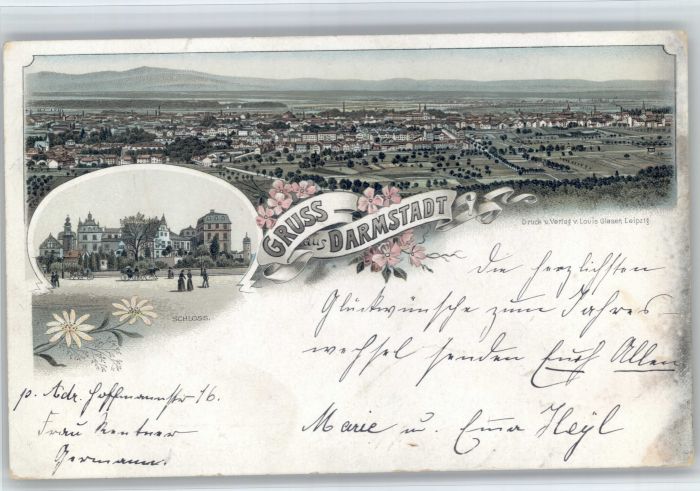 GRUSS
aus DARMSTADT
Druck u. Verlag v. Louis Glaser, Leipzig
SCHLOSS.
Die herzlichsten
Glückwünsche zum Jahres-
wechsel senden Euch Allen
Marie u. Emma Heyl
p. Adr. Hoffmannstr 16.
Frau Rentner
Germann.